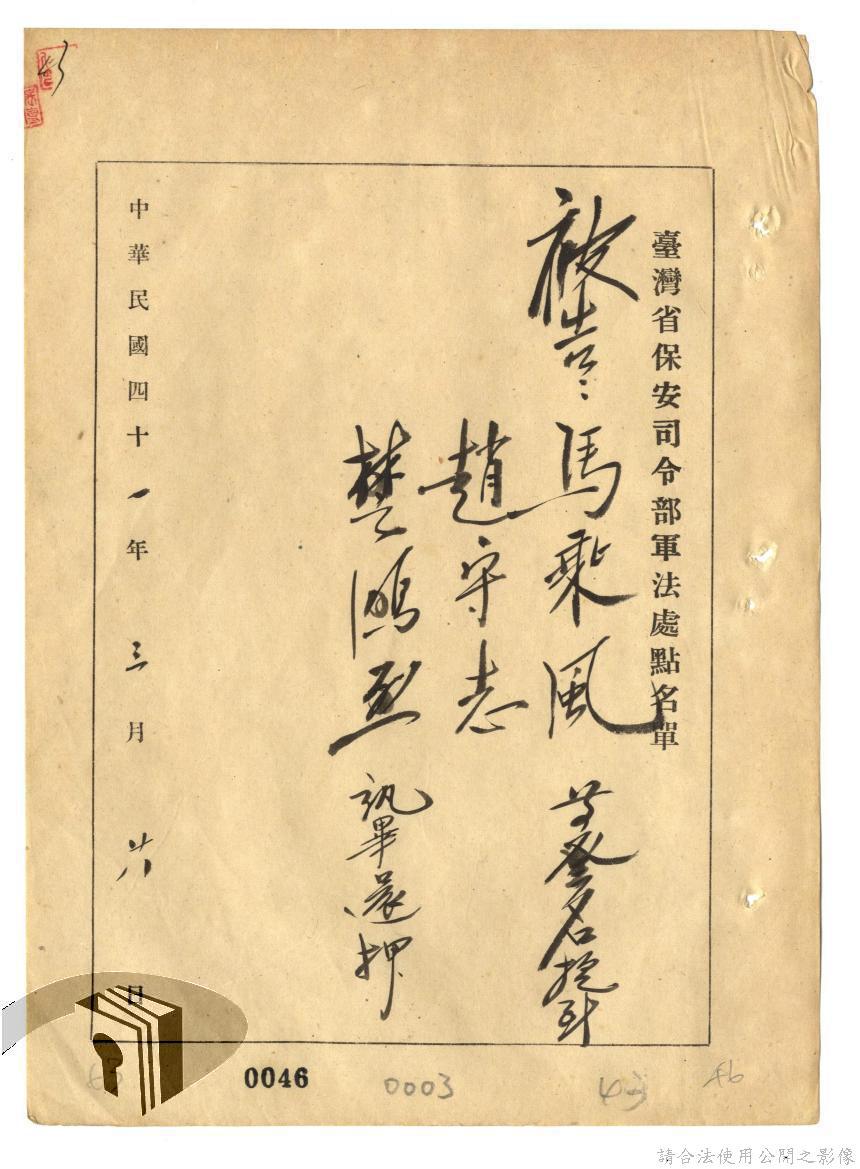 臺灣省保安司令部軍法處點名單
被告 馬乘風
趙守志
樊鴻烈 訊畢還押
中華民國四十一年三月廿八日
0046
0003
43
46
請合法使用公開之影像